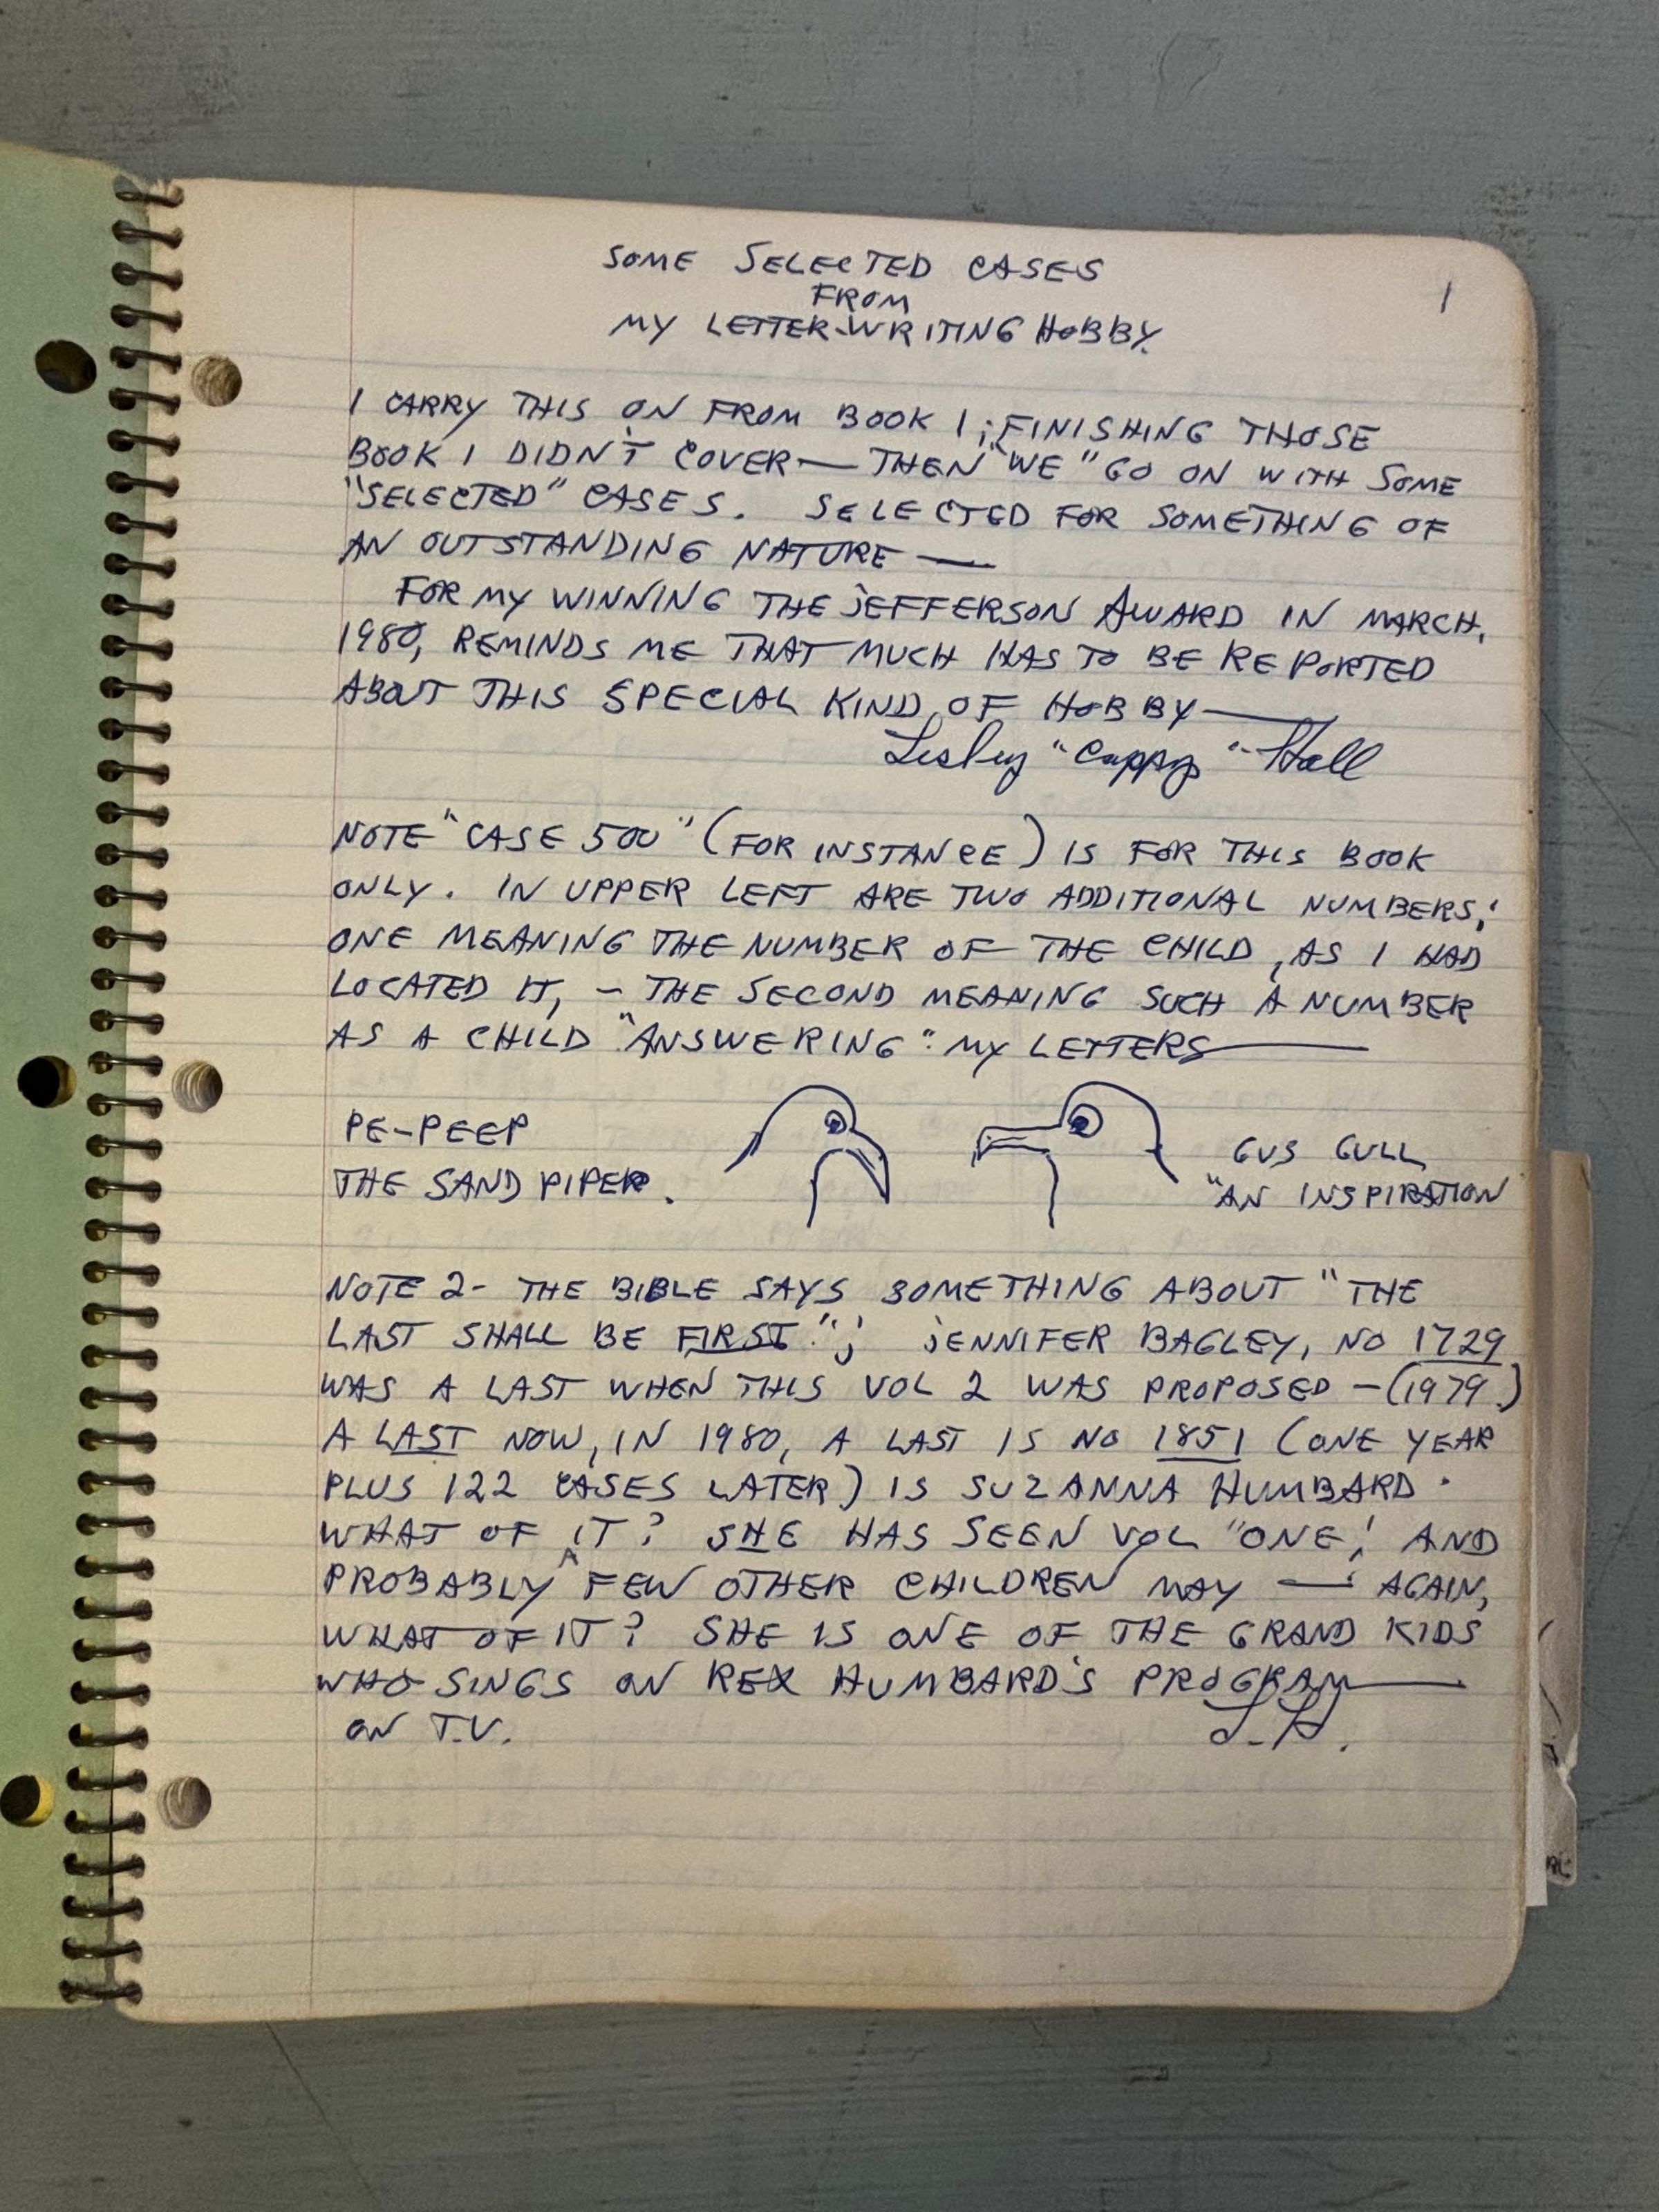 SOME SELECTED CASES
FROM
MY LETTER-WRITING HOBBY.
1
I CARRY THIS ON FROM BOOK 1; FINISHING THOSE
BOOK 1 DIDN'T COVER — THEN "WE" GO ON WITH SOME
"SELECTED" CASES. SELECTED FOR SOMETHING OF
AN OUTSTANDING NATURE —
FOR MY WINNING THE JEFFERSON AWARD IN MARCH,
1980, REMINDS ME THAT MUCH HAS TO BE REPORTED
ABOUT THIS SPECIAL KIND OF HOBBY —
Lesley "Cappy" Hall
NOTE "CASE 500" (FOR INSTANCE) IS FOR THIS BOOK
ONLY. IN UPPER LEFT ARE TWO ADDITIONAL NUMBERS;
ONE MEANING THE NUMBER OF THE CHILD, AS I HAD
LOCATED IT, – THE SECOND MEANING SUCH A NUMBER
AS A CHILD "ANSWERING" MY LETTERS —
PE-PEEP
THE SAND PIPER.
GUS GULL
"AN INSPIRATION
NOTE 2- THE BIBLE SAYS SOMETHING ABOUT "THE
LAST SHALL BE FIRST."; JENNIFER BAGLEY, NO 1729
WAS A LAST WHEN THIS VOL 2 WAS PROPOSED – (1979.)
A LAST NOW, IN 1980, A LAST IS NO 1851 (ONE YEAR
PLUS 122 CASES LATER) IS SUZANNA HUMBARD.
WHAT OF IT? SHE HAS SEEN VOL "ONE", AND
PROBABLY A FEW OTHER CHILDREN MAY — AGAIN,
WHAT OF IT? SHE IS ONE OF THE GRAND KIDS
WHO SINGS ON REX HUMBARD'S PROGRAM —
ON T.V.
L.H.